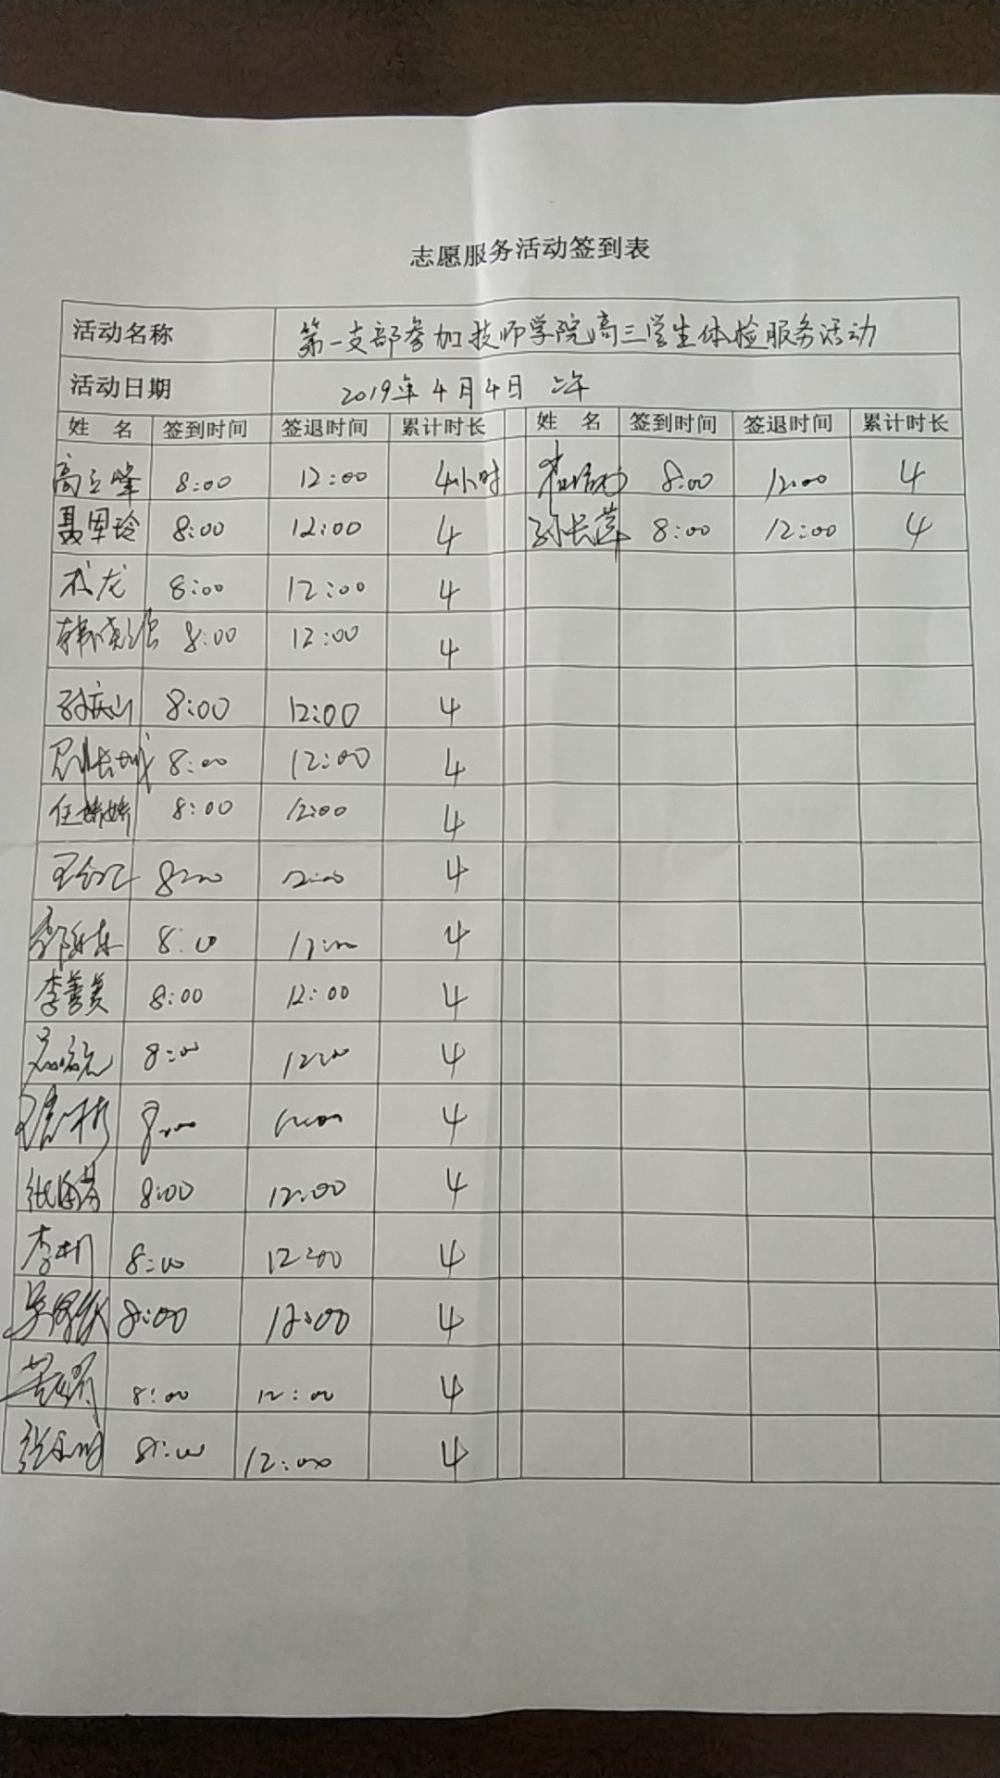 志愿服务活动签到表
活动名称 第一支部参加技师学院高三学生体检服务活动
活动日期 2019年4月4日 上午
姓 名 签到时间 签退时间 累计时长 姓 名 签到时间 签退时间 累计时长
高立峰 8:00 12:00 4小时 8:00 12:00 4
聂思玲 8:00 12:00 4 孙长萍 8:00 12:00 4
龙 8:00 12:00 4
韩晓 8:00 12:00 4
孙庆山 8:00 12:00 4
长城 8:00 12:00 4
任娇娇 8:00 12:00 4
王 8:00 12:00 4
8:00 12:00 4
李善美 8:00 12:00 4
8:00 12:00 4
8:00 12:00 4
张 8:00 12:00 4
李 8:00 12:00 4
吴 8:00 12:00 4
8:00 12:00 4
张 8:00 12:00 4